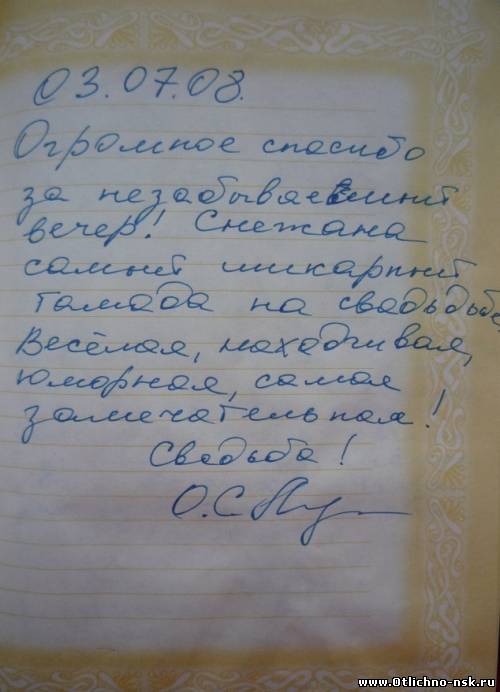 03.07.08.
Огромное спасибо
за незабываемый
вечер! Снежана
самый шикарный
тамада на свадьбе.
Весёлая, находчивая,
юморная, самая
замечательная!
Свадьба!
www.Otlichno-nsk.ru